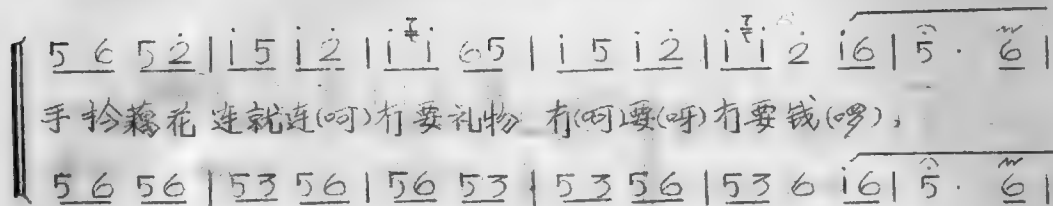 5 6 5 2̇ | i̇ 5 i̇ 2̇ | i̇ i̇ 6 5 | i̇ 5 i̇ 2̇ | i̇ i̇ 2̇ i̇ 6 | 5 · 6 |
手拎藕花 连就连(呵)冇要礼物 冇(呵)要(呀)冇要钱(啰),
5 6 5 6 | 5 3 5 6 | 5 6 5 3 | 5 3 5 6 | 5 3 6 i̇ 6 | 5 · 6 |